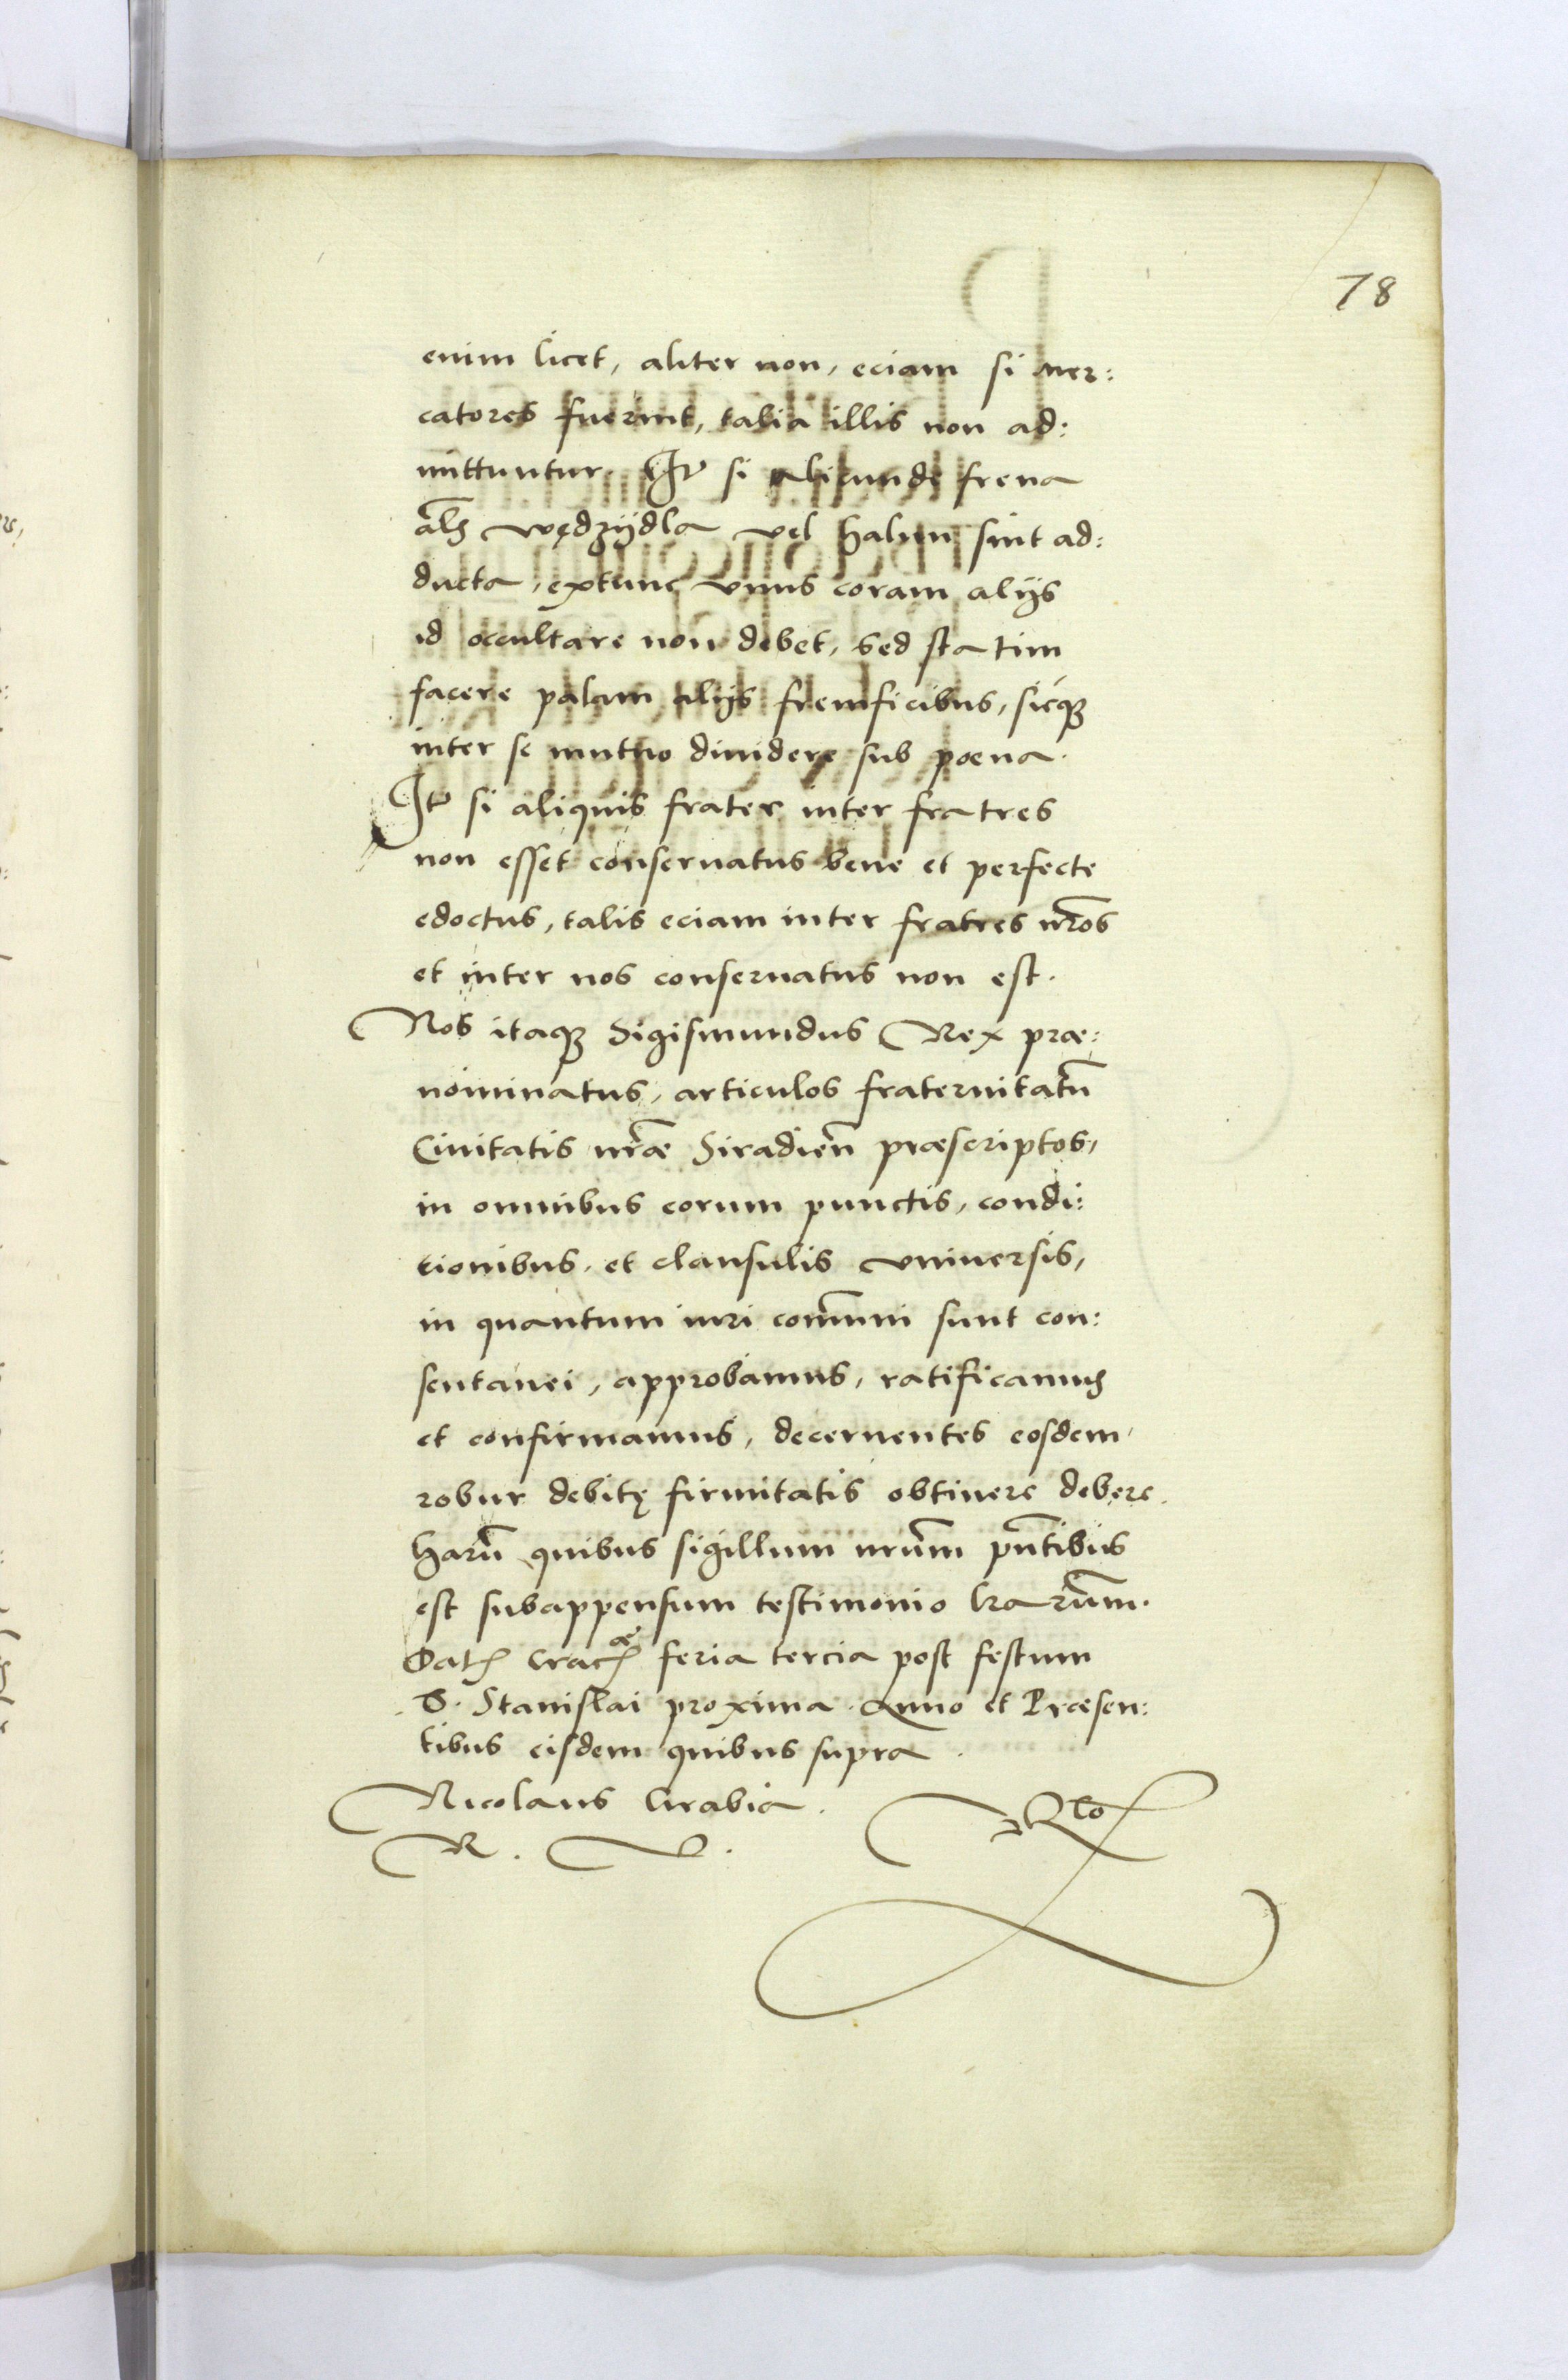 78
enim licet, aliter non, eciam si mer:
catores fuerint, talia illis non ad:
mittuntur. It͛ si alicunde frena
al͠s wędzijdla vel halun sint ad:
ducta, extunc vnus coram alijs
id occultare non debet, sed statim
facere palam alijs frenificibus, sicqꝫ
inter se mutuo diuidere sub poena.
It͛ si aliquis frater inter fratres
non esset conseruatus bene et perfecte
edoctus, talis eciam inter fratres nr̃os
et inter nos conseruatus non est.
Nos itaqꝫ Sigismundus Rex præ:
nominatus, articulos fraternitatũ
Ciuitatis nr̃æ Siradien̄ præscriptos,
in omnibus eorum punctis, condi:
tionibus, et clausulis vniuersis,
in quantum iuri com̄uni sunt con:
sentanei, approbamus, ratificamus
et confirmamus, decernentes eosdem
robur debitę firmitatis obtinere debere.
harũ quibus sigillum nrũm pn̄tibus
est subappensum testimonio lrarũm.
Datꝭ Cracꝭæ feria tercia post festum
S. Stanislai proxima. Anno et Præsen:
tibus eisdem quibus supra.
Nicolaus Grabia.
R. V.